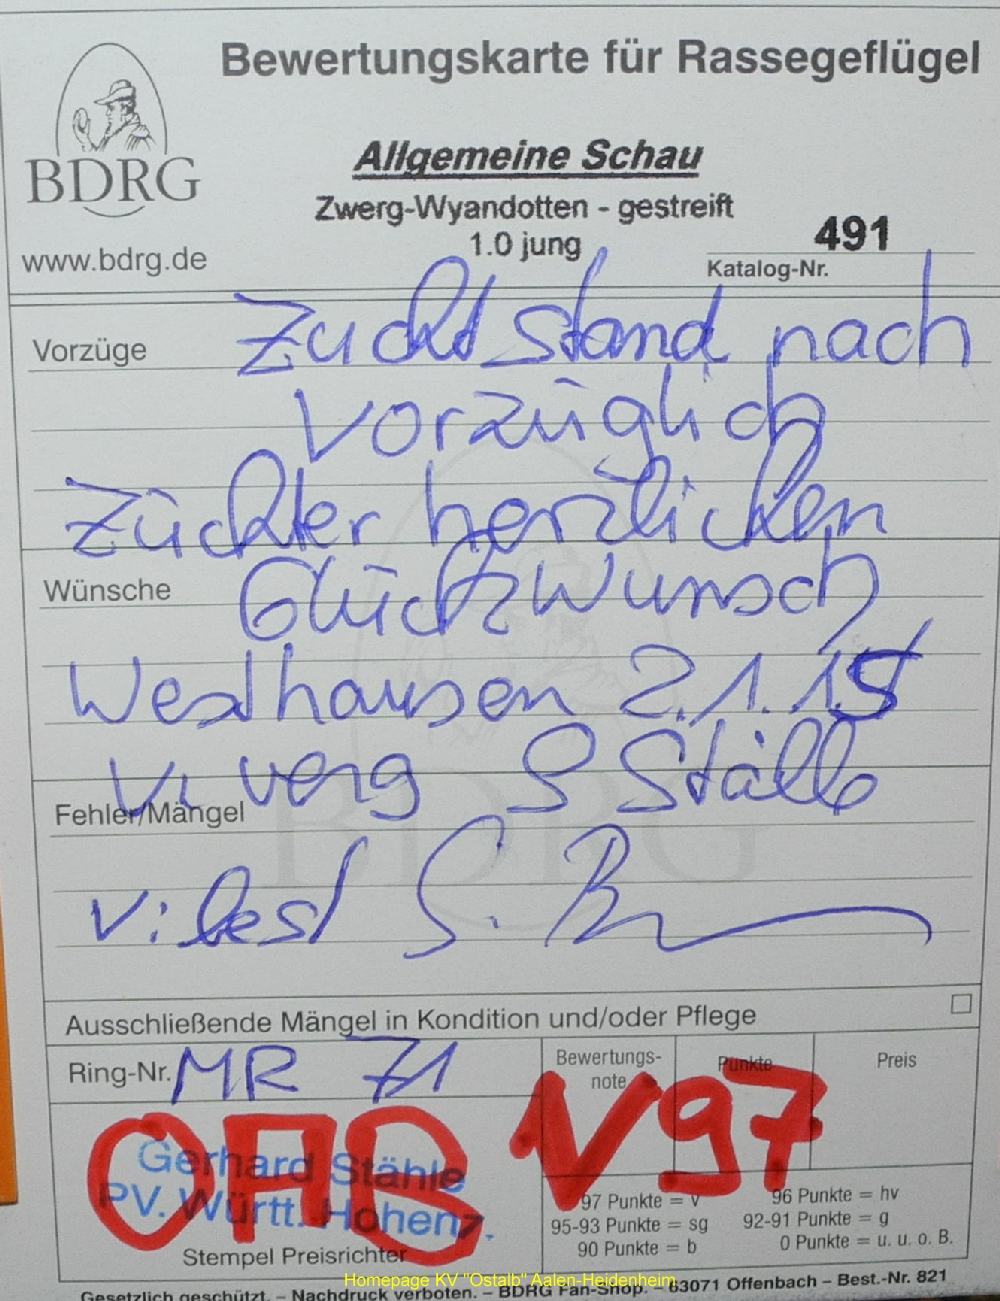 Bewertungskarte für Rassegeflügel
BDRG
www.bdrg.de
Allgemeine Schau
Zwerg-Wyandotten - gestreift
1.0 jung
491
Katalog-Nr.
Vorzüge
Zuchtstand nach
Vorzüglich
Züchter herzlichen
Wünsche
Glückwunsch
Westhausen 2.1.15
Fehler/Mängel
BDRG
Ausschließende Mängel in Kondition und/oder Pflege
Ring-Nr. MR 71
Bewertungs-
note
Punkte
Preis
V 97
OAB
Gerhard Stähle
PV. Württ. Hohenz.
Stempel Preisrichter
97 Punkte = v
96 Punkte = hv
95-93 Punkte = sg
92-91 Punkte = g
90 Punkte = b
0 Punkte = u. u. o. B.
Homepage KV "Ostalb" Aalen-Heidenheim
Gesetzlich geschützt. – Nachdruck verboten. – BDRG Fan-Shop. – 63071 Offenbach – Best.-Nr. 821